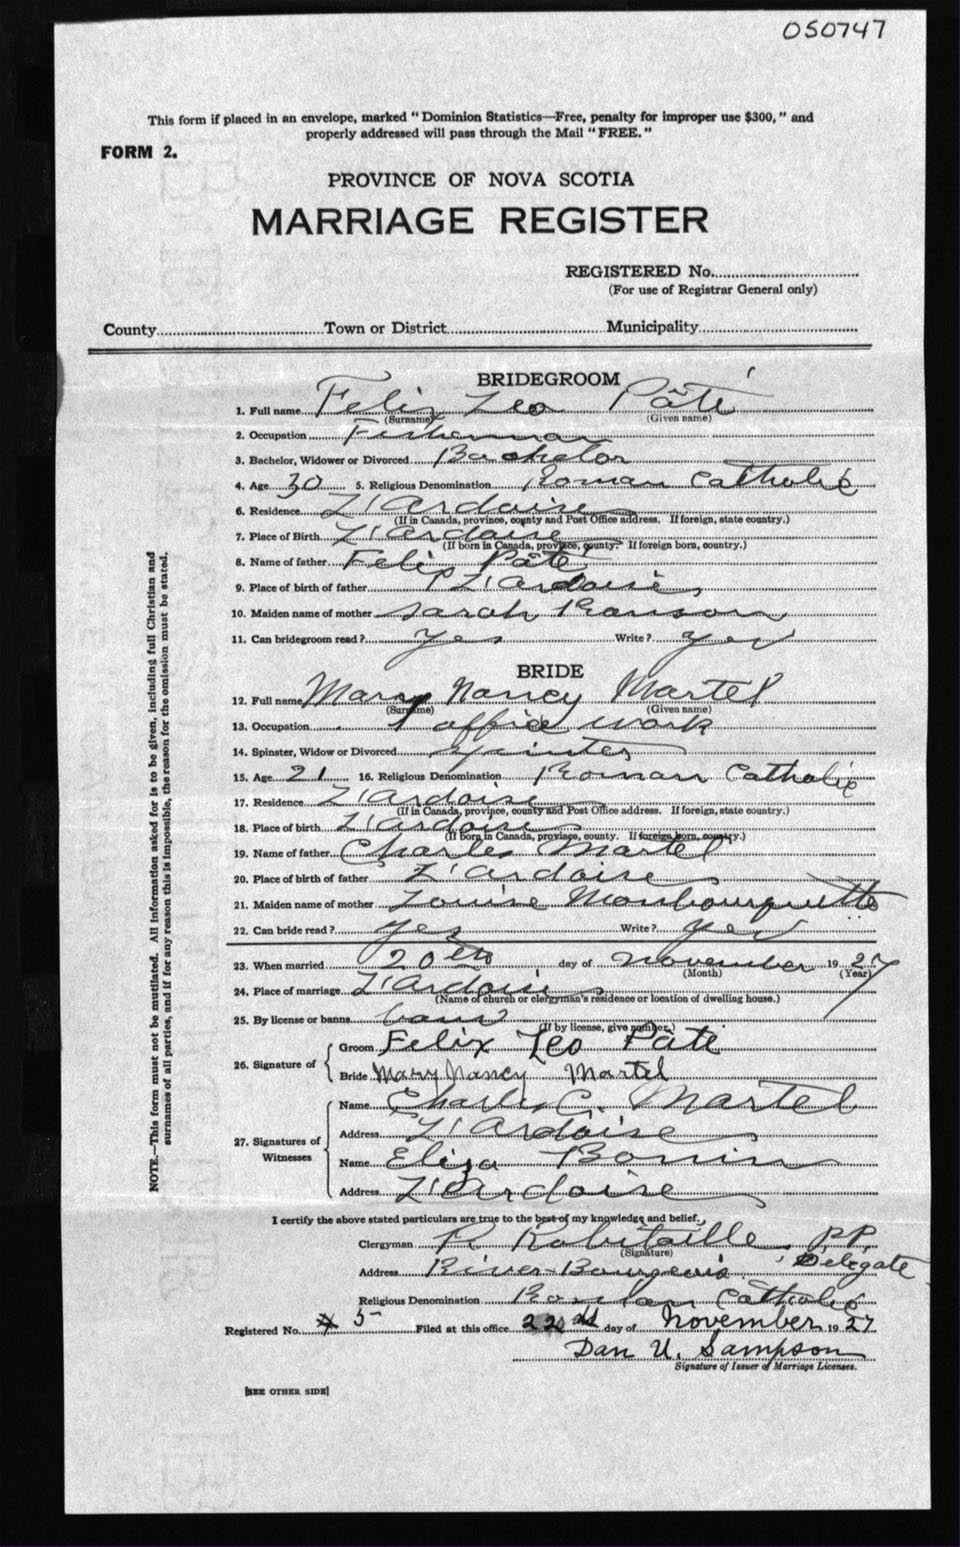 050747
This form if placed in an envelope, marked "Dominion Statistics—Free, penalty for improper use $300," and
properly addressed will pass through the Mail "FREE."
FORM 2.
PROVINCE OF NOVA SCOTIA
MARRIAGE REGISTER
REGISTERED No.
(For use of Registrar General only)
County Town or District Municipality
BRIDEGROOM
1. Full name Felix Leo Pâté
(Surname) (Given name)
2. Occupation Fisherman
3. Bachelor, Widower or Divorced Bachelor
4. Age 30 5. Religious Denomination Roman Catholic
6. Residence L'Ardoise
(If in Canada, province, county and Post Office address. If foreign, state country.)
7. Place of Birth L'Ardoise
(If born in Canada, province, county. If foreign born, country.)
8. Name of father Felix Pâté
9. Place of birth of father L'Ardoise
10. Maiden name of mother Sarah
11. Can bridegroom read? Yes Write? Yes
BRIDE
12. Full name Mary Nancy Martel
(Surname) (Given name)
13. Occupation office work
14. Spinster, Widow or Divorced
15. Age 21 16. Religious Denomination Roman Catholic
17. Residence L'Ardoise
(If in Canada, province, county and Post Office address. If foreign, state country.)
18. Place of birth L'Ardoise
(If born in Canada, province, county. If foreign born, country.)
19. Name of father Charles Martel
20. Place of birth of father L'Ardoise
21. Maiden name of mother Louise Monbourquette
22. Can bride read? Yes Write? Yes
23. When married 20th day of November 1927
(Month) (Year)
24. Place of marriage L'Ardoise
(Name of church or clergyman's residence or location of dwelling house.)
25. By license or banns banns
(If by license, give number.)
26. Signature of
Groom Felix Leo Pâte
Bride Mary Nancy Martel
27. Signatures of Witnesses
Name Charles C. Martel
Address L'Ardoise
Name Eliza Bonin
Address L'Ardoise
I certify the above stated particulars are true to the best of my knowledge and belief.
Clergyman R. Robitaille P.P.
(Signature)
Delegate
Address River-Bourgeois
Religious Denomination Roman Catholic
Registered No. 5 Filed at this office 22nd day of November 1927
Dan U. Sampson
Signature of Issuer of Marriage Licenses.
[SEE OTHER SIDE]
NOTE.—This form must not be mutilated. All information asked for is to be given, including full Christian and
surnames of all parties, and if for any reason this is impossible, the reason for the omission must be stated.